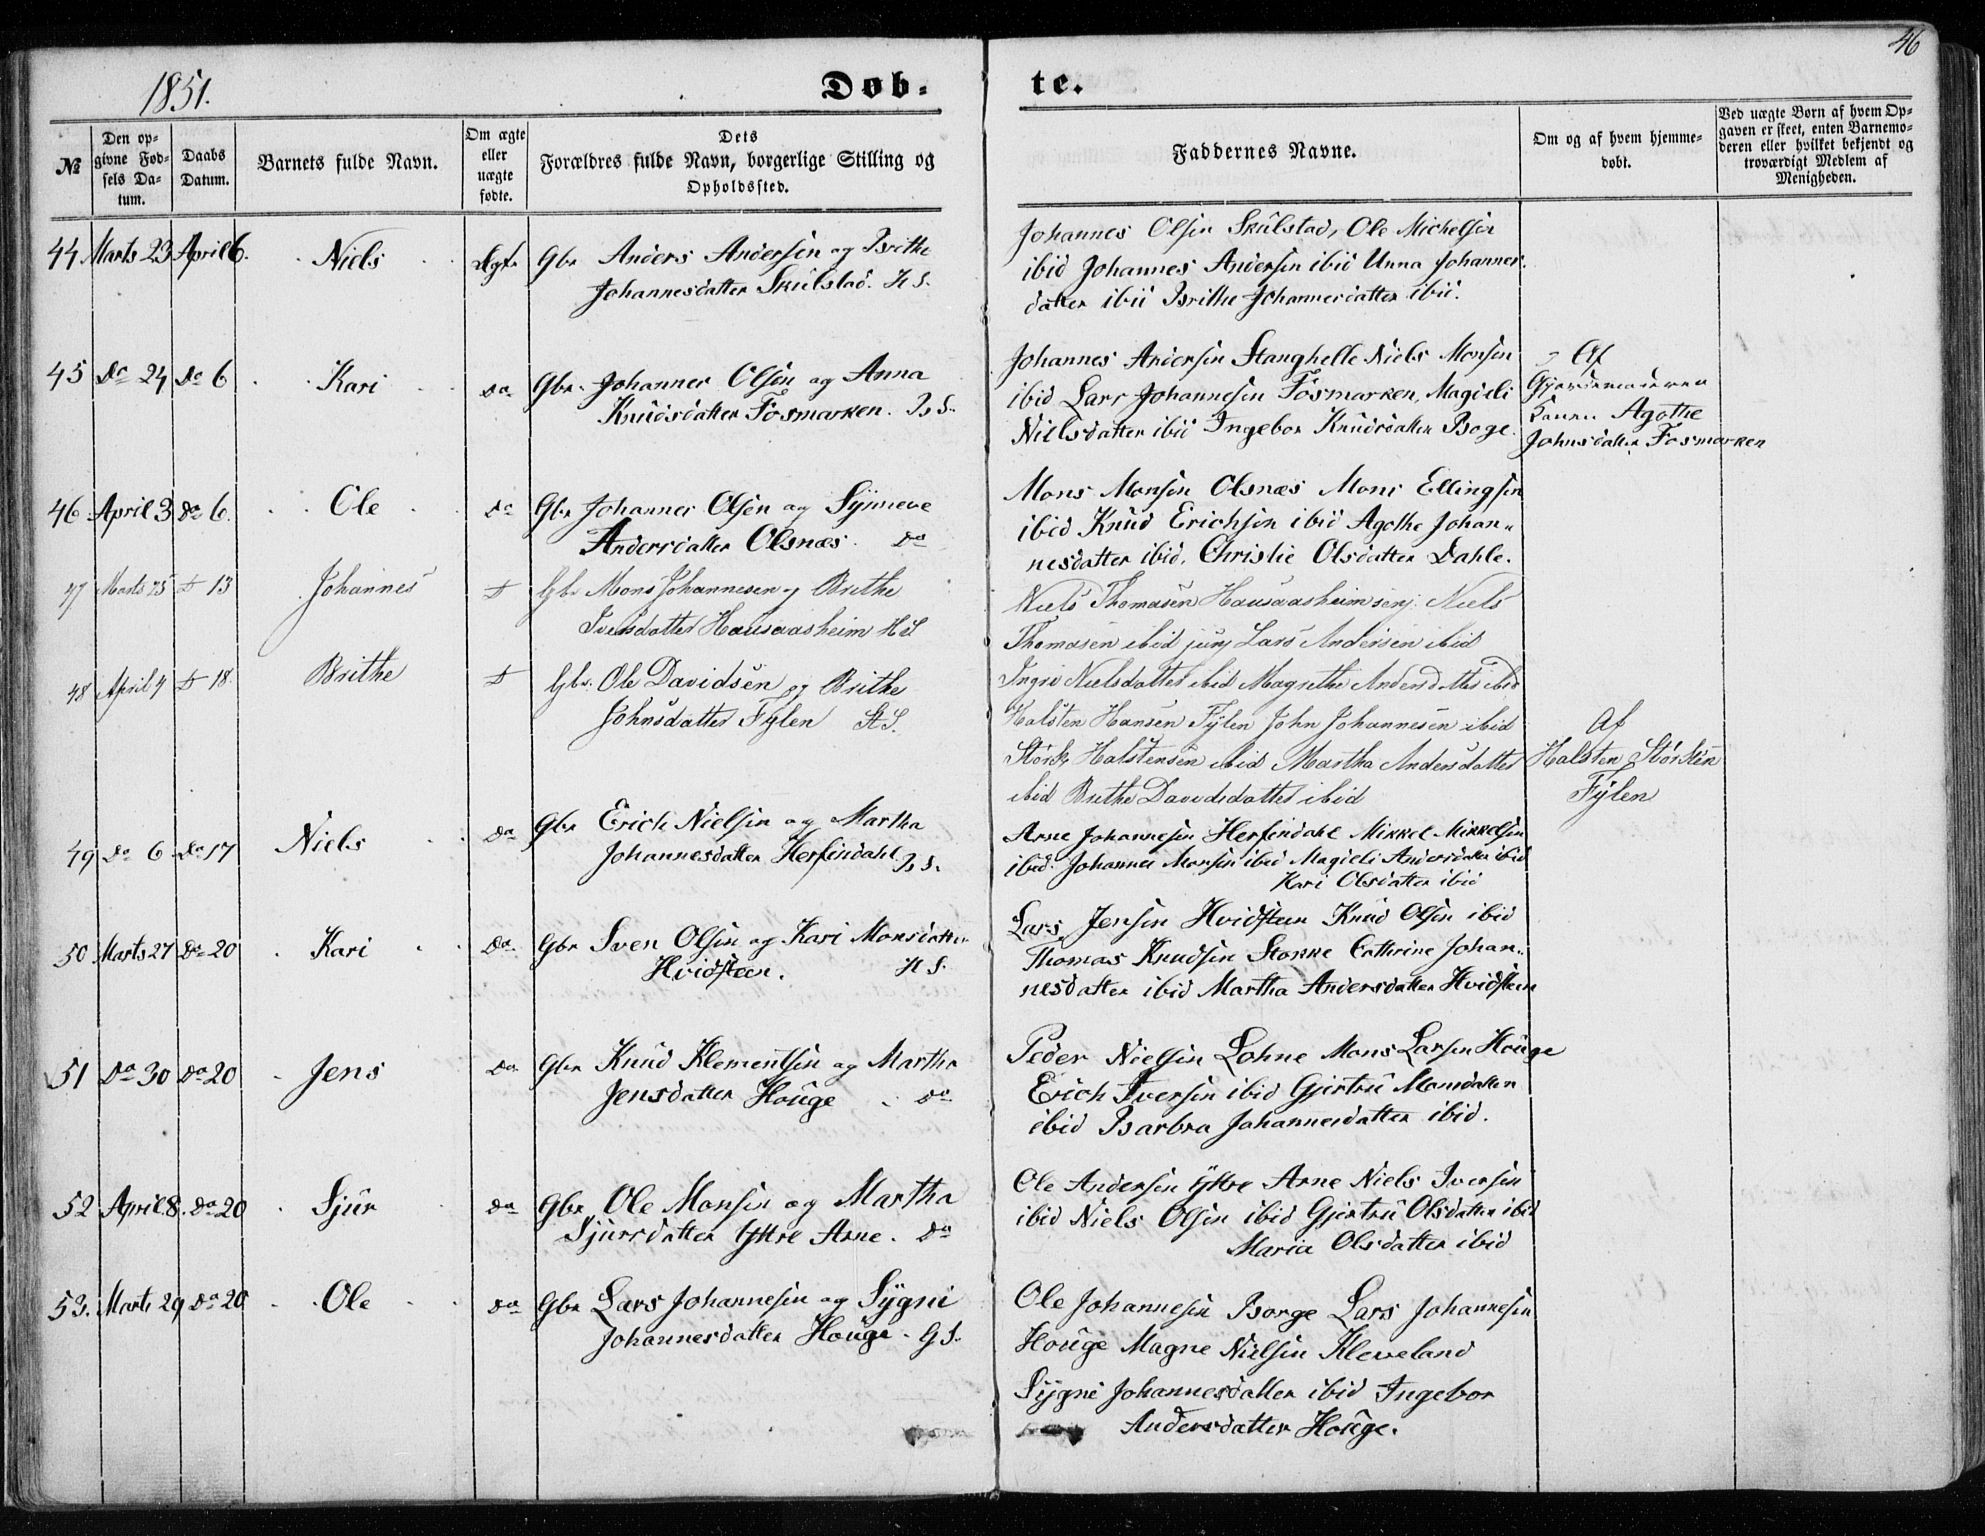 46
1851.
Døb-
te.
№
Den op-
givne Fød-
sels Da-
tum.
Daabs
Datum.
Barnets fulde Navn.
Om ægte
eller
uægte
fødte.
Dets
Forældres fulde Navn, borgerlige Stilling og
Opholdssted.
Faddernes Navne.
Om og af hvem hjemme-
døbt.
Ved uægte Børn af hvem Op-
gaven er skeet, enten Barnemo-
deren eller hvilket bekjendt og
troværdigt Medlem af
Menigheden.
44 Marts 23 April 6. Niels Ægte Gbr Anders Andersen og Brithe
Johannesdatter Skulstad. H S.
Johannes Olsen Skulstad, Ole Michelsen
ibid Johannes Andersen ibid Unna Johannes-
datter ibid Brithe Johannesdatter ibid.
45 Do 24 Do 6 Kari Do Gbr. Johannes Olsen og Anna
Knudsdatter Fosmarken. B S.
Johannes Andersen Stanghelle Niels Monsen
ibid Lars Johannesen Fosmarken, Magieli
Nielsdatter ibid Ingebor Knudsdatter Boge.
Af
Gjordemoderen
Agothe
Johnsdatter Fosmarken
46 April 3 Do 6. Ole Do Gbr Johannes Olsen og Synneve
Andersdatter Olsnæs. Do
Mons Monsen Olsnæs Mons Ellingsen
ibid Knud Erichsen ibid Agothe Johan-
nesdatter ibid. Christie Olsdatter Dahle.
47 Marts 25 D 13 Johannes D Gbr Mons Johannesen og Brithe
Iversdatter Hausaasheim H S
Niels Thomasen Hausaasheim senj. Niels
Thomasen ibid junj Lars Andersen ibid
Ingri Nielsdatter ibid Magrethe Andersdatter ibid
48 April 4 D 18. Brithe D Gbr. Ole Davidsen og Brithe
Johnsdatter Fylen St S.
Halsten Hansen Fylen John Johannesen ibid
Størk Halstensen ibid Martha Andersdatter
ibid Brithe Davidsdatter ibid
Af
Halsten Størksen
Fylen
49 Do 6 Do 17 Niels Do Gbr Erich Nielsen og Martha
Johannesdatter Herfindahl B S.
Arne Johannesen Herfindahl Mikkel Mikkelsen
ibid. Johannes Monsen ibid Magieli Andersdatter ibid
Kari Olsdatter ibid
50 Marts 27 Do 20 Kari Do. Gbr Sven Olsen og Kari Monsdatter
Hvidsteen. H S.
Lars Jensen Hvidsteen Knud Olsen ibid
Thomas Knudsen Stokke Cathrine Johan-
nesdatter ibid Martha Andersdatter Hvidsteen
51 Do 30 Do 20 Jens Do Gbr Knud Klementsen og Martha
Jensdatter Houge Do
Peder Nielsen Lohne Mons Larsen Houge
Erich Iversen ibid Gjertru Monsdatter
ibid Barbra Johannesdatter ibid.
52 April 8. Do 20 Sjur Do Gbr Ole Monsen og Martha
Sjursdatter Yttre Arne. Do
Ole Andersen Yttre Arne Niels Iversen
ibid Niels Olsen ibid Gjertru Olsdatter ibid
Maria Olsdatter ibid
53. Marts 29 Do 20 Ole Do Gbr Lars Johannesen og Sygni
Johannesdatter Houge. G S.
Ole Johannesen Borge Lars Johannesen
Houge Magne Nielsen Kleveland
Sygni Johannesdatter ibid Ingebor
Andersdatter Houge.